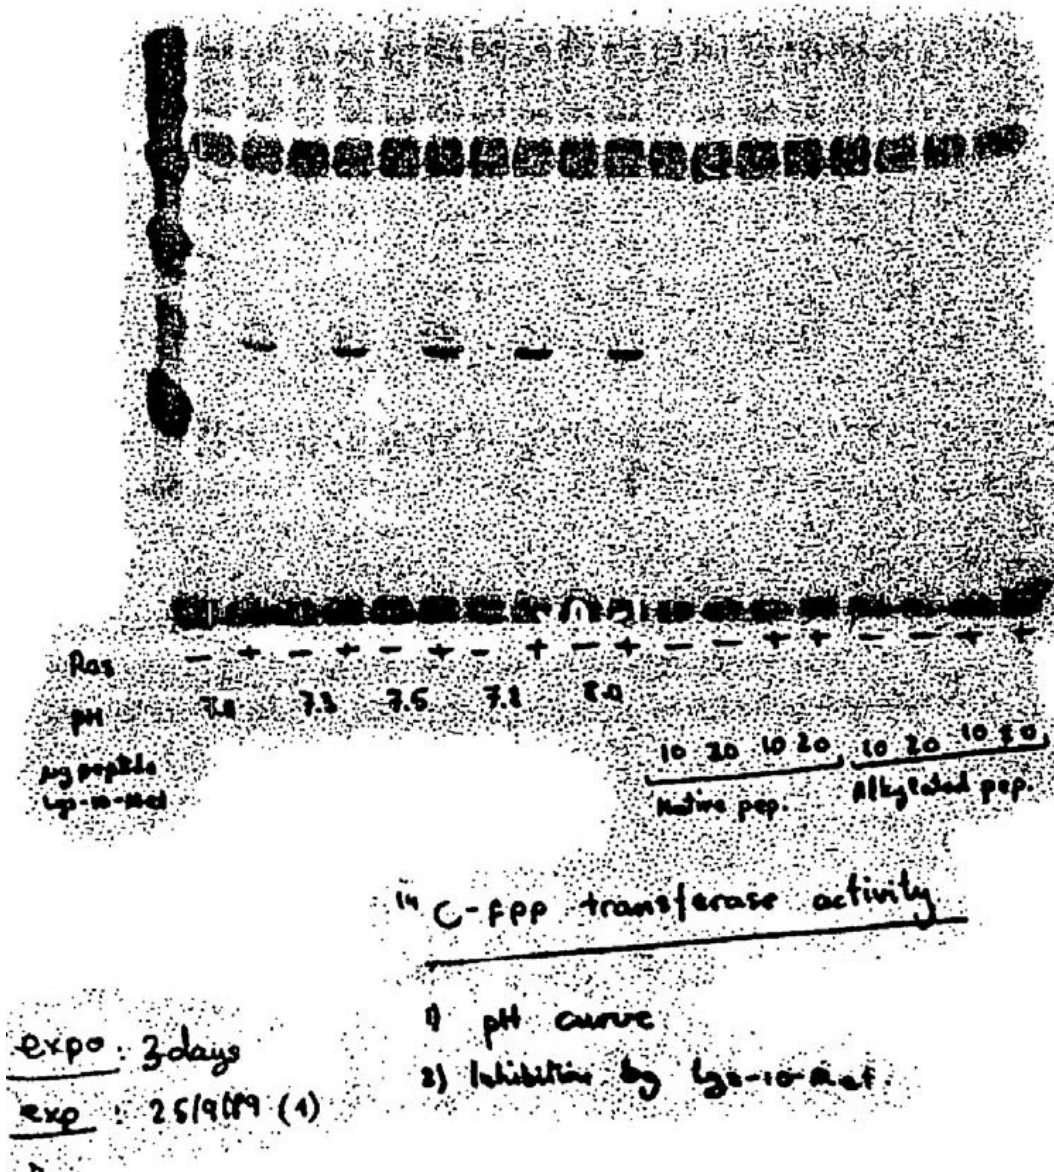 Ras - + - + - + - + - + - - + + - - + +
pH 7.0 7.3 7.5 7.8 8.0
µg peptide 10 20 10 20 10 20 10 20
Lys-10-Met Native pep. Alkylated pep.
14 C-FPP transferase activity
1) pH curve
2) Inhibition by Lys-10-Met
expo : 3 days
exp : 25/9/89 (1)